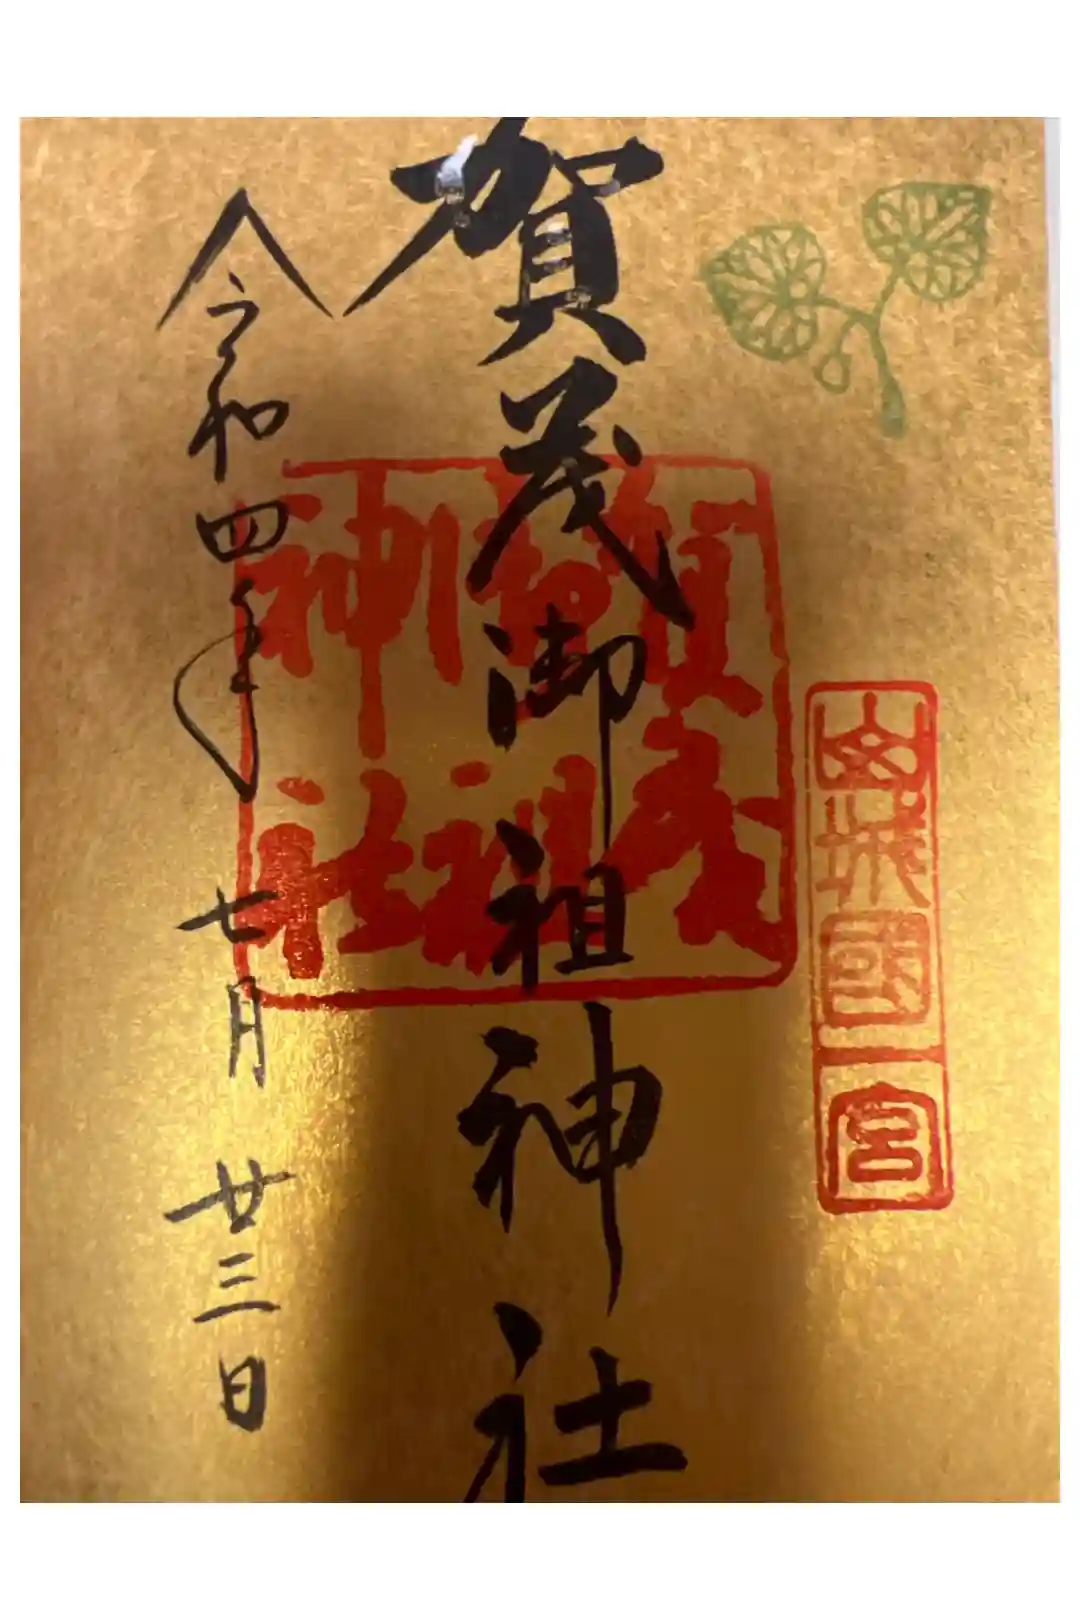 山城國一宮
賀茂御祖神社
賀茂御祖神社
令和四年七月廿三日